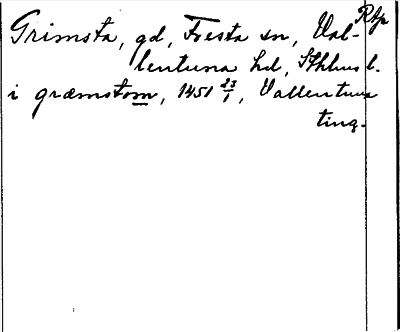 Rtp
Grimsta, gd, Fresta sn, Val-
lentuna hd, Sthlms l.
i græmstom, 1451 23/1, Vallentuna
ting.